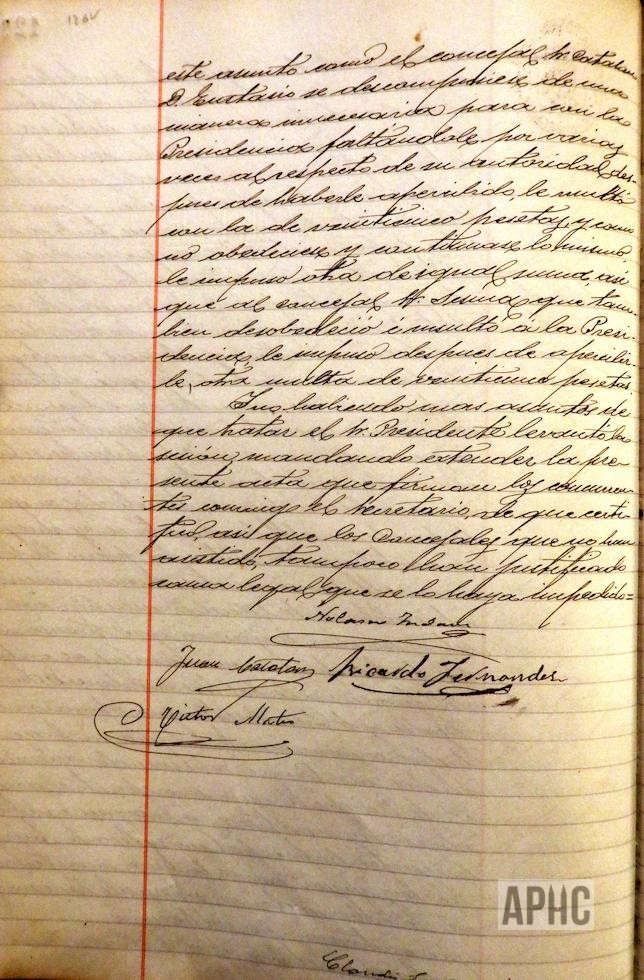 128V
este asunto como el concejal Sr. Catalan
D. Eustasio se descompusiese de una
manera innecesaria para con la
Presidencia faltandole por varias
veces al respeto de su autoridad, des-
pues de haberle apercibido, le multó
con la de veinticinco pesetas, y como
no obedeciese y continuase lo mismo,
le impuso otra de igual suma, asi
que al concejal Sr. que tam-
bien desobedeció é insultó á la Presi-
dencia, le impuso despues de apercibir-
le, otra multa de veinticinco pesetas.
Y no habiendo mas asuntos de
que tratar el Sr. Presidente levantó la
sesion, mandando extender la pre-
sente acta que firman los concurren-
tes conmigo el Secretario, de que certi-
fico, asi que los Concejales que no han
asistido, tampoco han justificado
causa legal que se lo haya impedido=
Juan Catalan Ricardo Fernandez
Victor Mateo
APHC